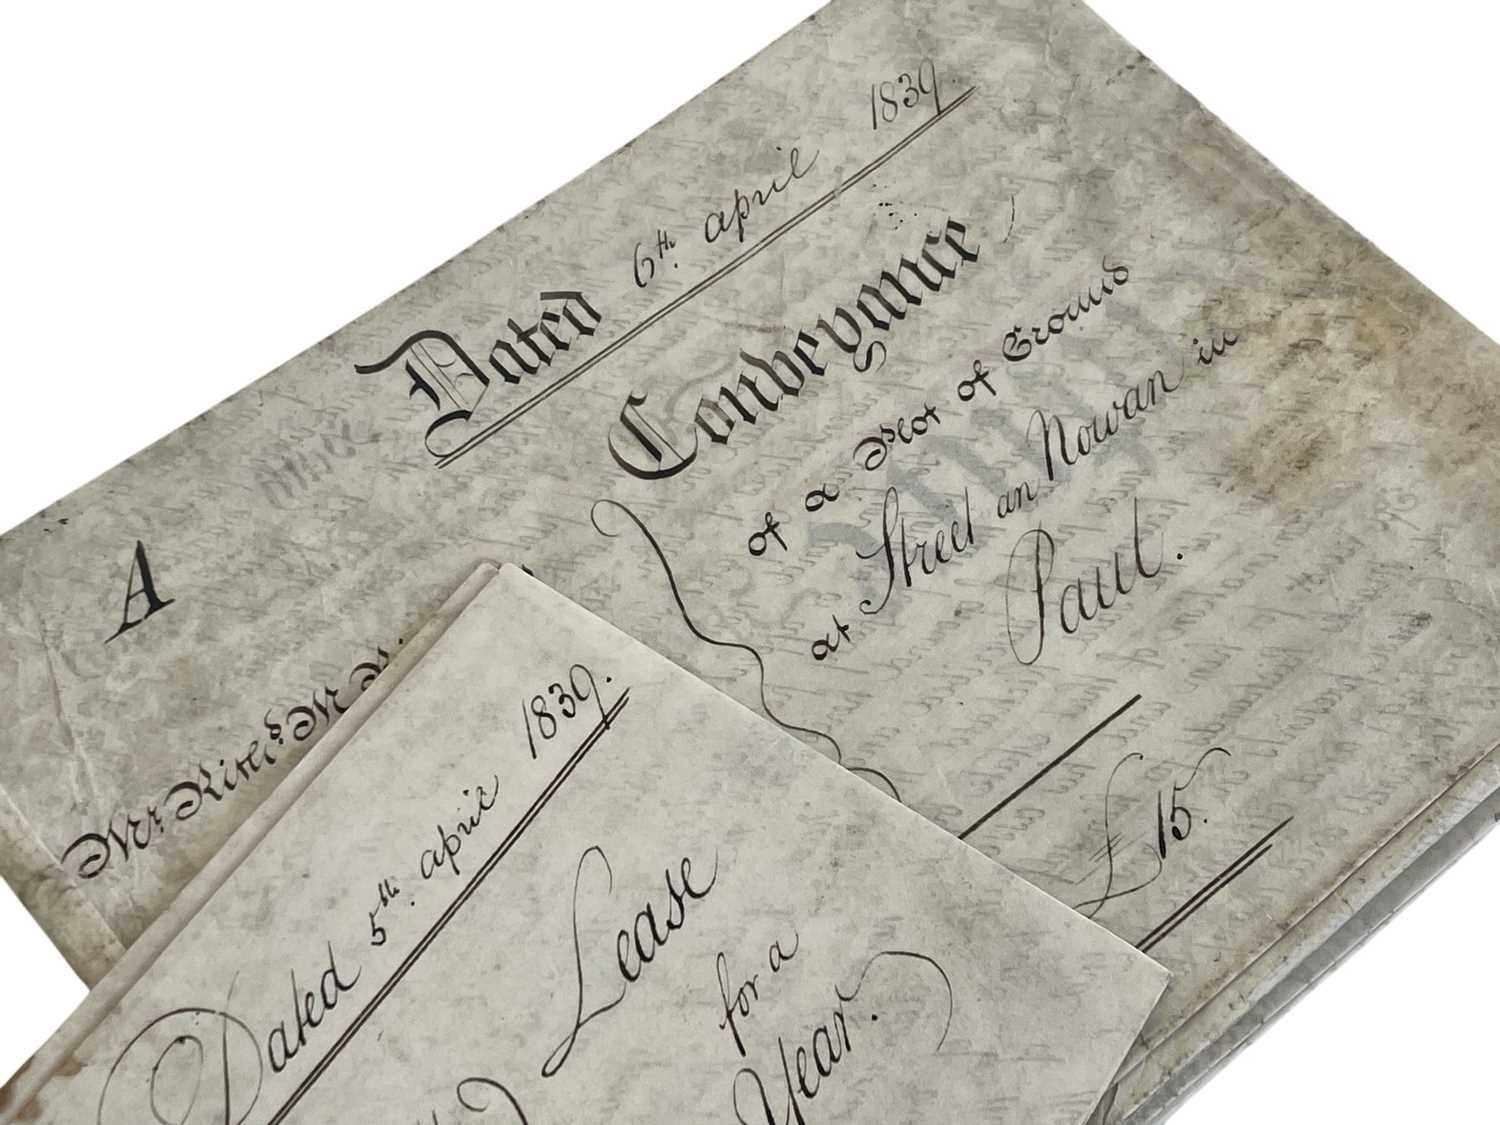 Dated 6th. april 1839.
Conveyance
of a Plot of Ground
at Street an Nowan in
Paul.
£15.
A
Mr.
Dated 5th. april 1839.
Lease
for a
Year.